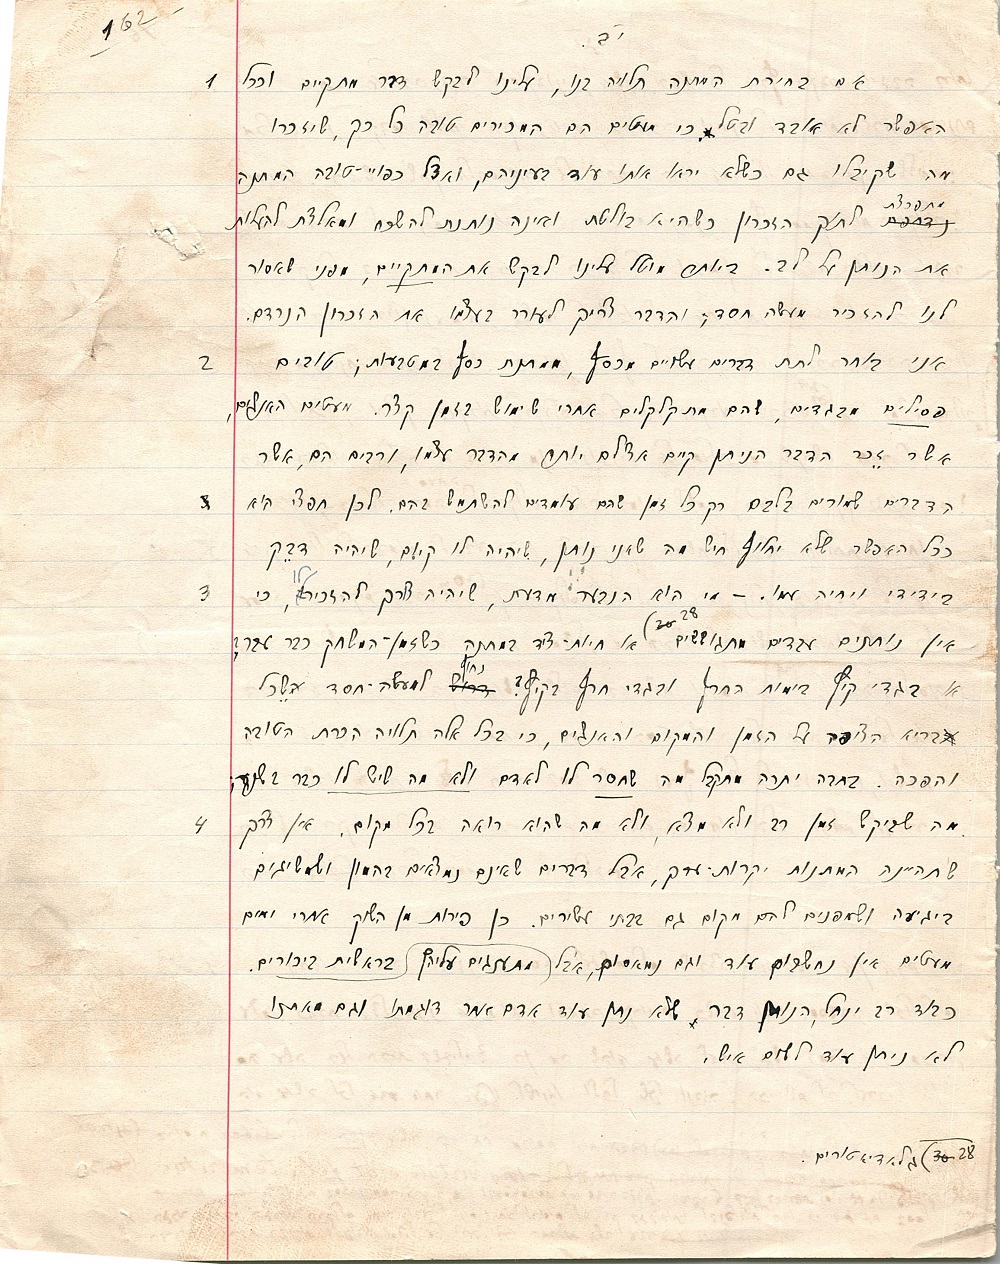 162
י"ב.
1 אם בחירת המתנה תלויה בנו, עלינו לבקש דבר מתקיים וככל
האפשר לא אובד ובטל, כי מעטים הם המכירים טובה כל כך, שיזכרו
מה שקיבלו גם כשלא יראו אותו עוד בעיניהם, ואצל כפויי-טובה המתנה
מתפרצת
נדחפת לתוך הזכרון כשהיא בולטת ואינה נותנת להשכח ומאלצת להעלות
את הנותן על לב. ביותר מוטל עלינו לבקש את המתקיים, מפני שאסור
לנו להזכיר מעשה חסד; והדבר צריך לעורר בעצמו את הזכרון הנרדם.
2 אני בוחר לתת דברים עשויים מכסף, ממתנת כסף במטבעות; טובים
פסילים מבגדים, שהם מתקלקלים אחרי שימוש בזמן קצר. מעטים האנשים,
אשר זכר הדבר הניתן קיים אצלם יותר מהדבר עצמו, ורבים הם, אשר
הדברים שמורים בלבם רק כל זמן שהם עומדים להשתמש בהם. לכן חפצי הוא
ככל האפשר שלא יחלוף חיש מה שאני נותן, שיהיה לו קיום, שיהיה דבק
3 בידידי ויחיה עמו. – מי הוא הנבער מדעת, שיהיה צורך להזכירו, כי
אין נותנים עבדים מתגוששים (28 או חיות-ציד במתנה כשזמן-המשחק כבר עבר,
נחוץ
או בגדי קיץ בימות החורף ובגדי חורף בקיץ? למעשה-חסד השכל
הבריא הצופה על הזמן והמקום והאנשים, כי בכל אלה תלויה הכרת הטובה
והפכה. בחבה יתרה מתקבל מה שחסר לו לאדם ולא מה שיש לו כבר בשפע;
4 מה שביקש זמן רב ולא מצא, ולא מה שהוא רואה בכל מקום. אין צורך
שתהיינה המתנות יקרות-ערך, אבל דברים שאינם נמצאים בהמון ושמשיגים
ביגיעה ושמפנים להם מקום גם בבתי עשירים. כן פירות מן השוק אחרי ימים
מעטים אין נחשבים עוד וגם נמאסים, אבל מתענגים עליהן בראשית ביכורים.
כבוד רב ינחל, הנותן דבר, שלא נתן עוד אדם אחר דוגמתו וגם מאתנו
לא ניתן עוד לשום איש.
28) גלאדיאטורים.